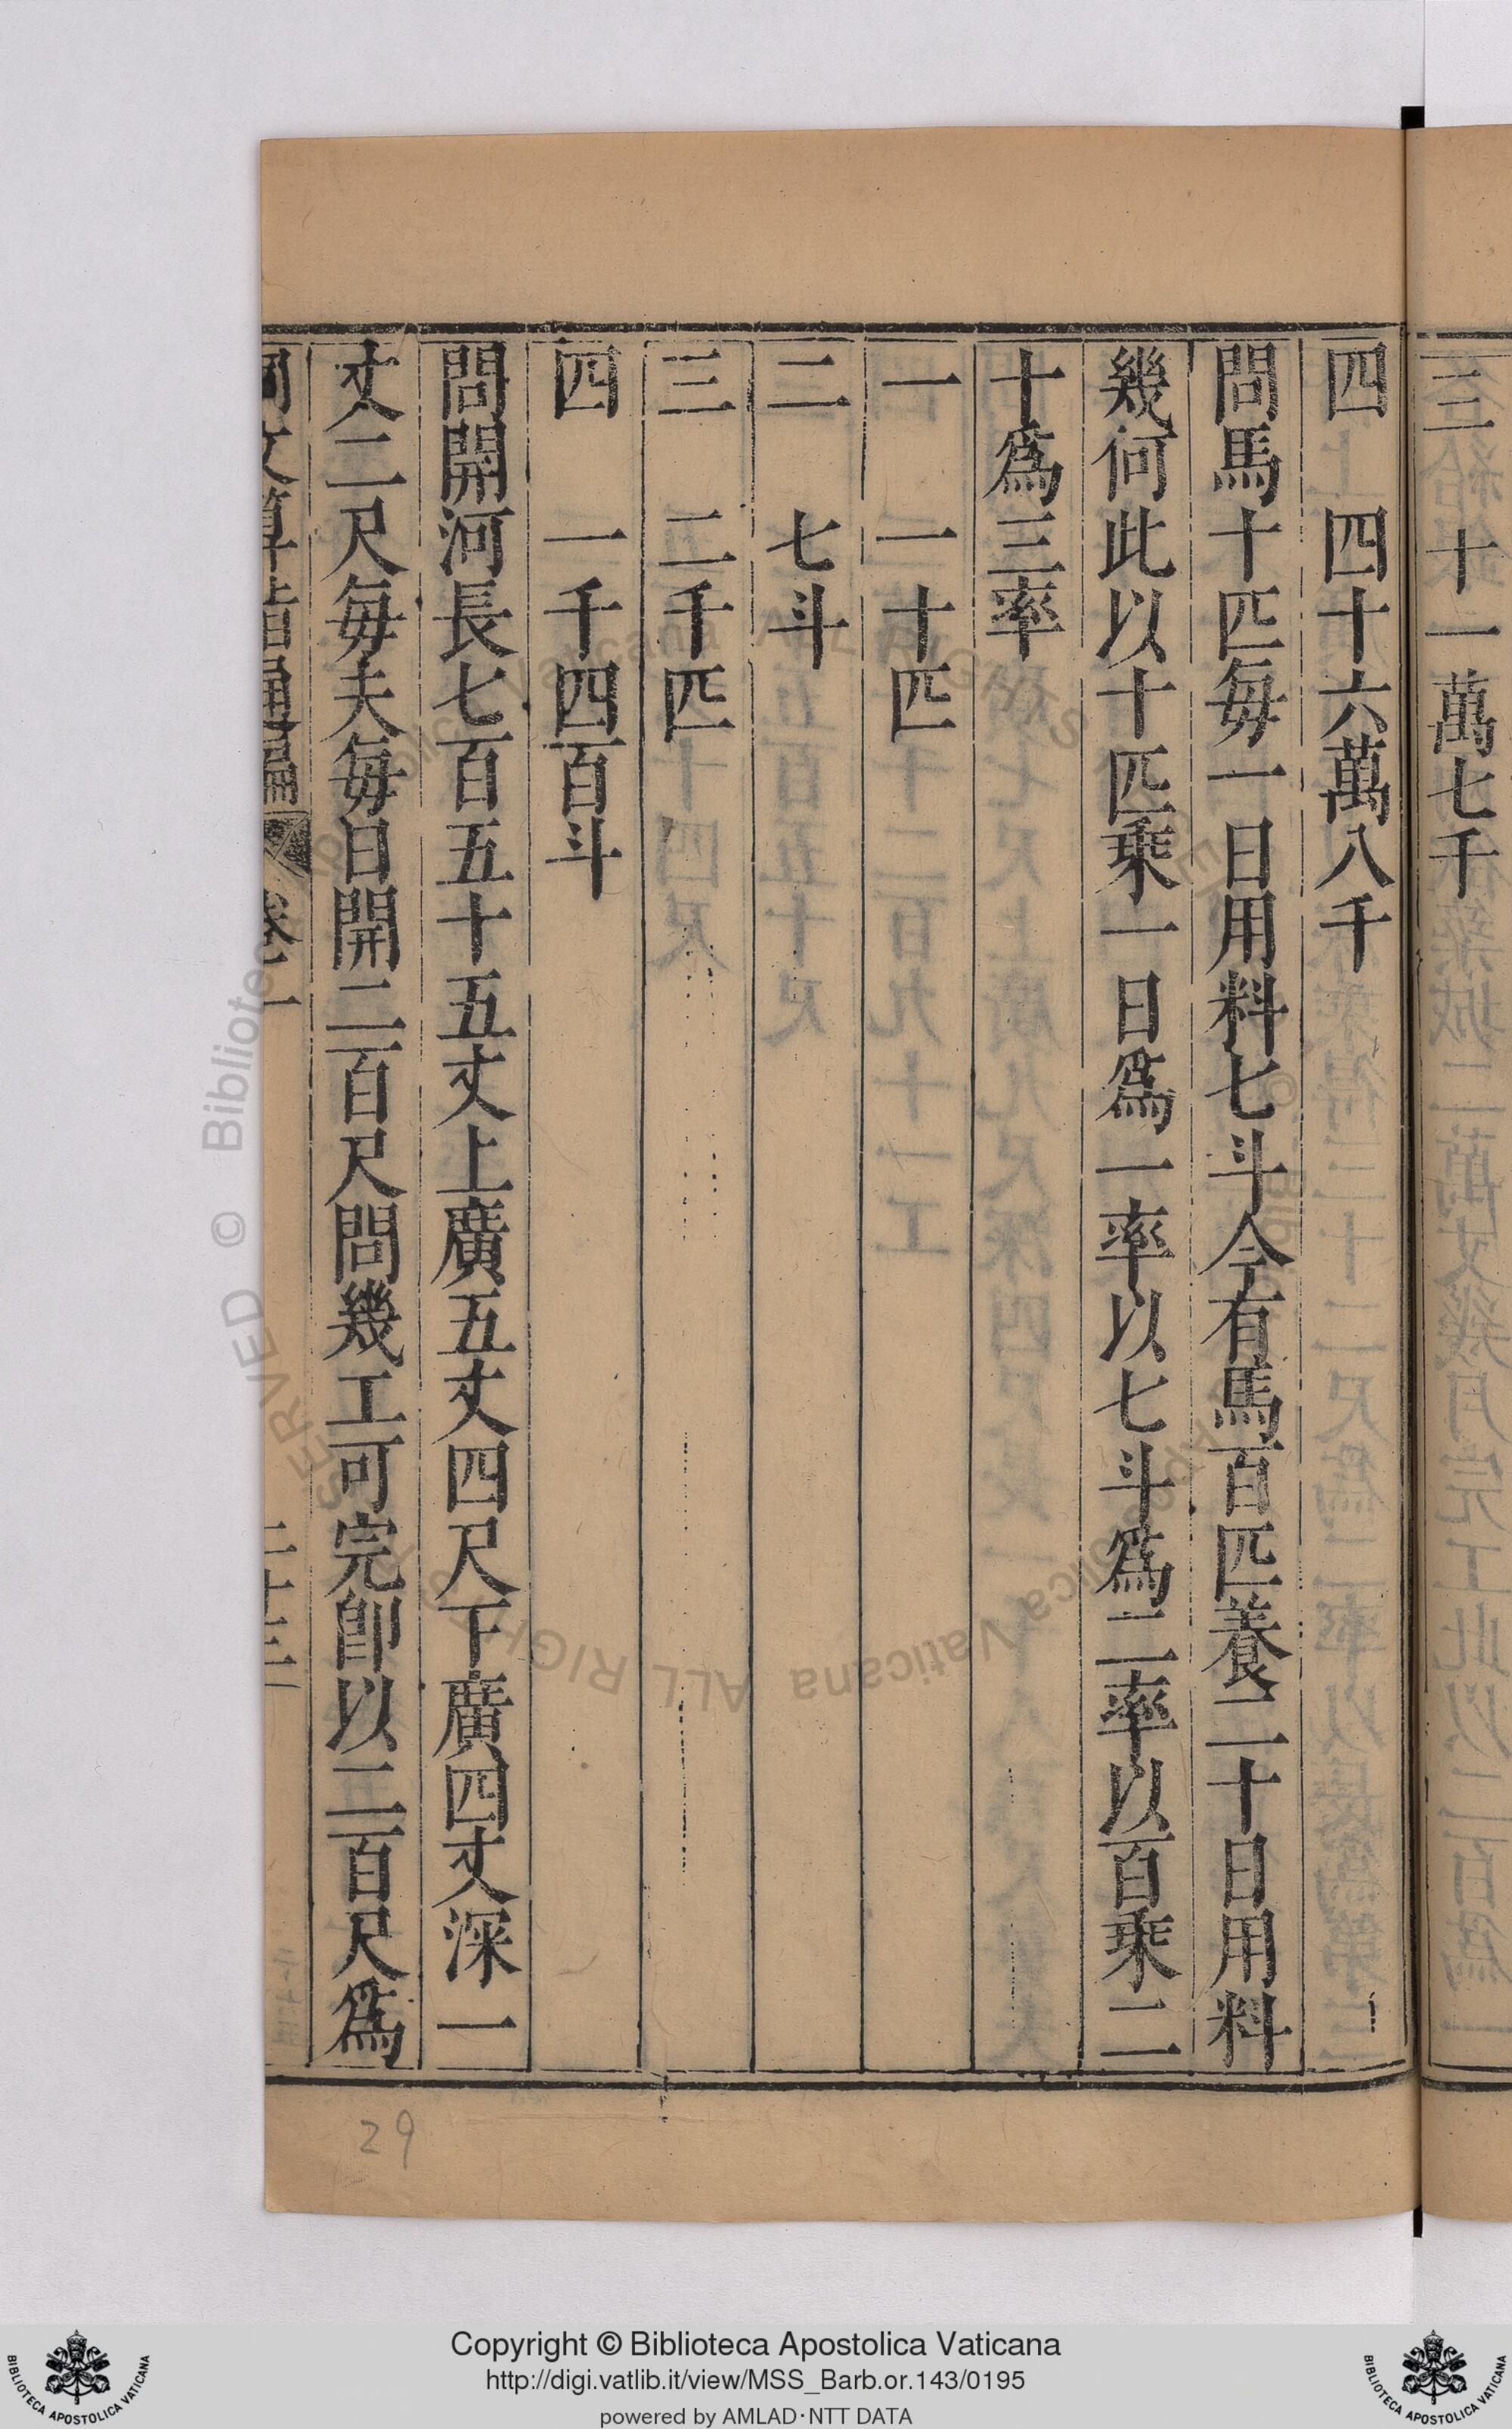 三　十一萬七千
四　四十六萬八千
問馬十匹每一日用料七斗今有馬百匹養二十日用料
幾何此以十匹乘一日爲一率以七斗爲二率以百乘二
十爲三率
一　一十匹
二　七斗
三　二千匹
四　一千四百斗
問開河長七百五十五丈上廣五丈四尺下廣四丈深一
丈二尺每夫每日開二百尺問幾工可完卽以二百尺爲
同文算指通編 卷一 二十三
29
© Biblioteca Apostolica Vaticana ALL RIGHTS RESERVED
Copyright © Biblioteca Apostolica Vaticana
http://digi.vatlib.it/view/MSS_Barb.or.143/0195
powered by AMLAD·NTT DATA
BIBLIOTECA APOSTOLICA VATICANA
BIBLIOTECA APOSTOLICA VATICANA